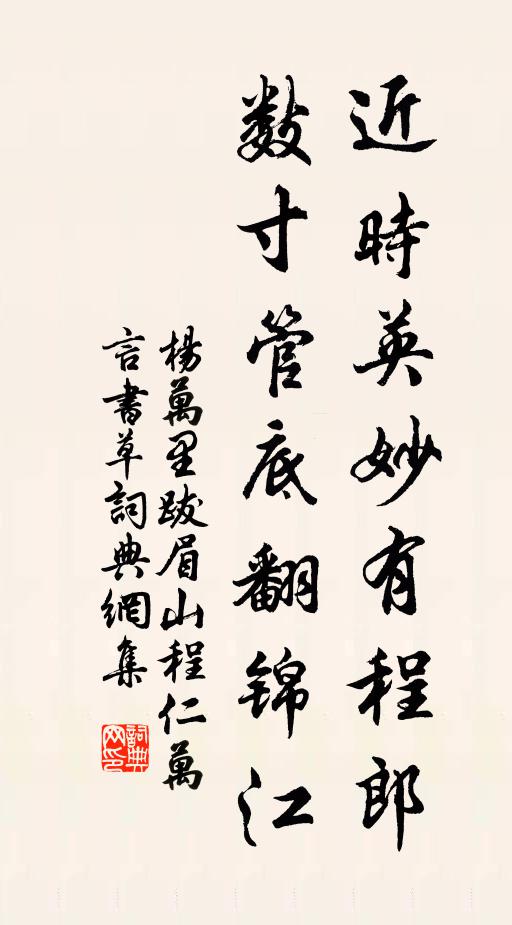 近時英妙有程郎
数寸管底翻锦江
楊萬里跋眉山程仁萬
言書草詞典網集
詞典网印